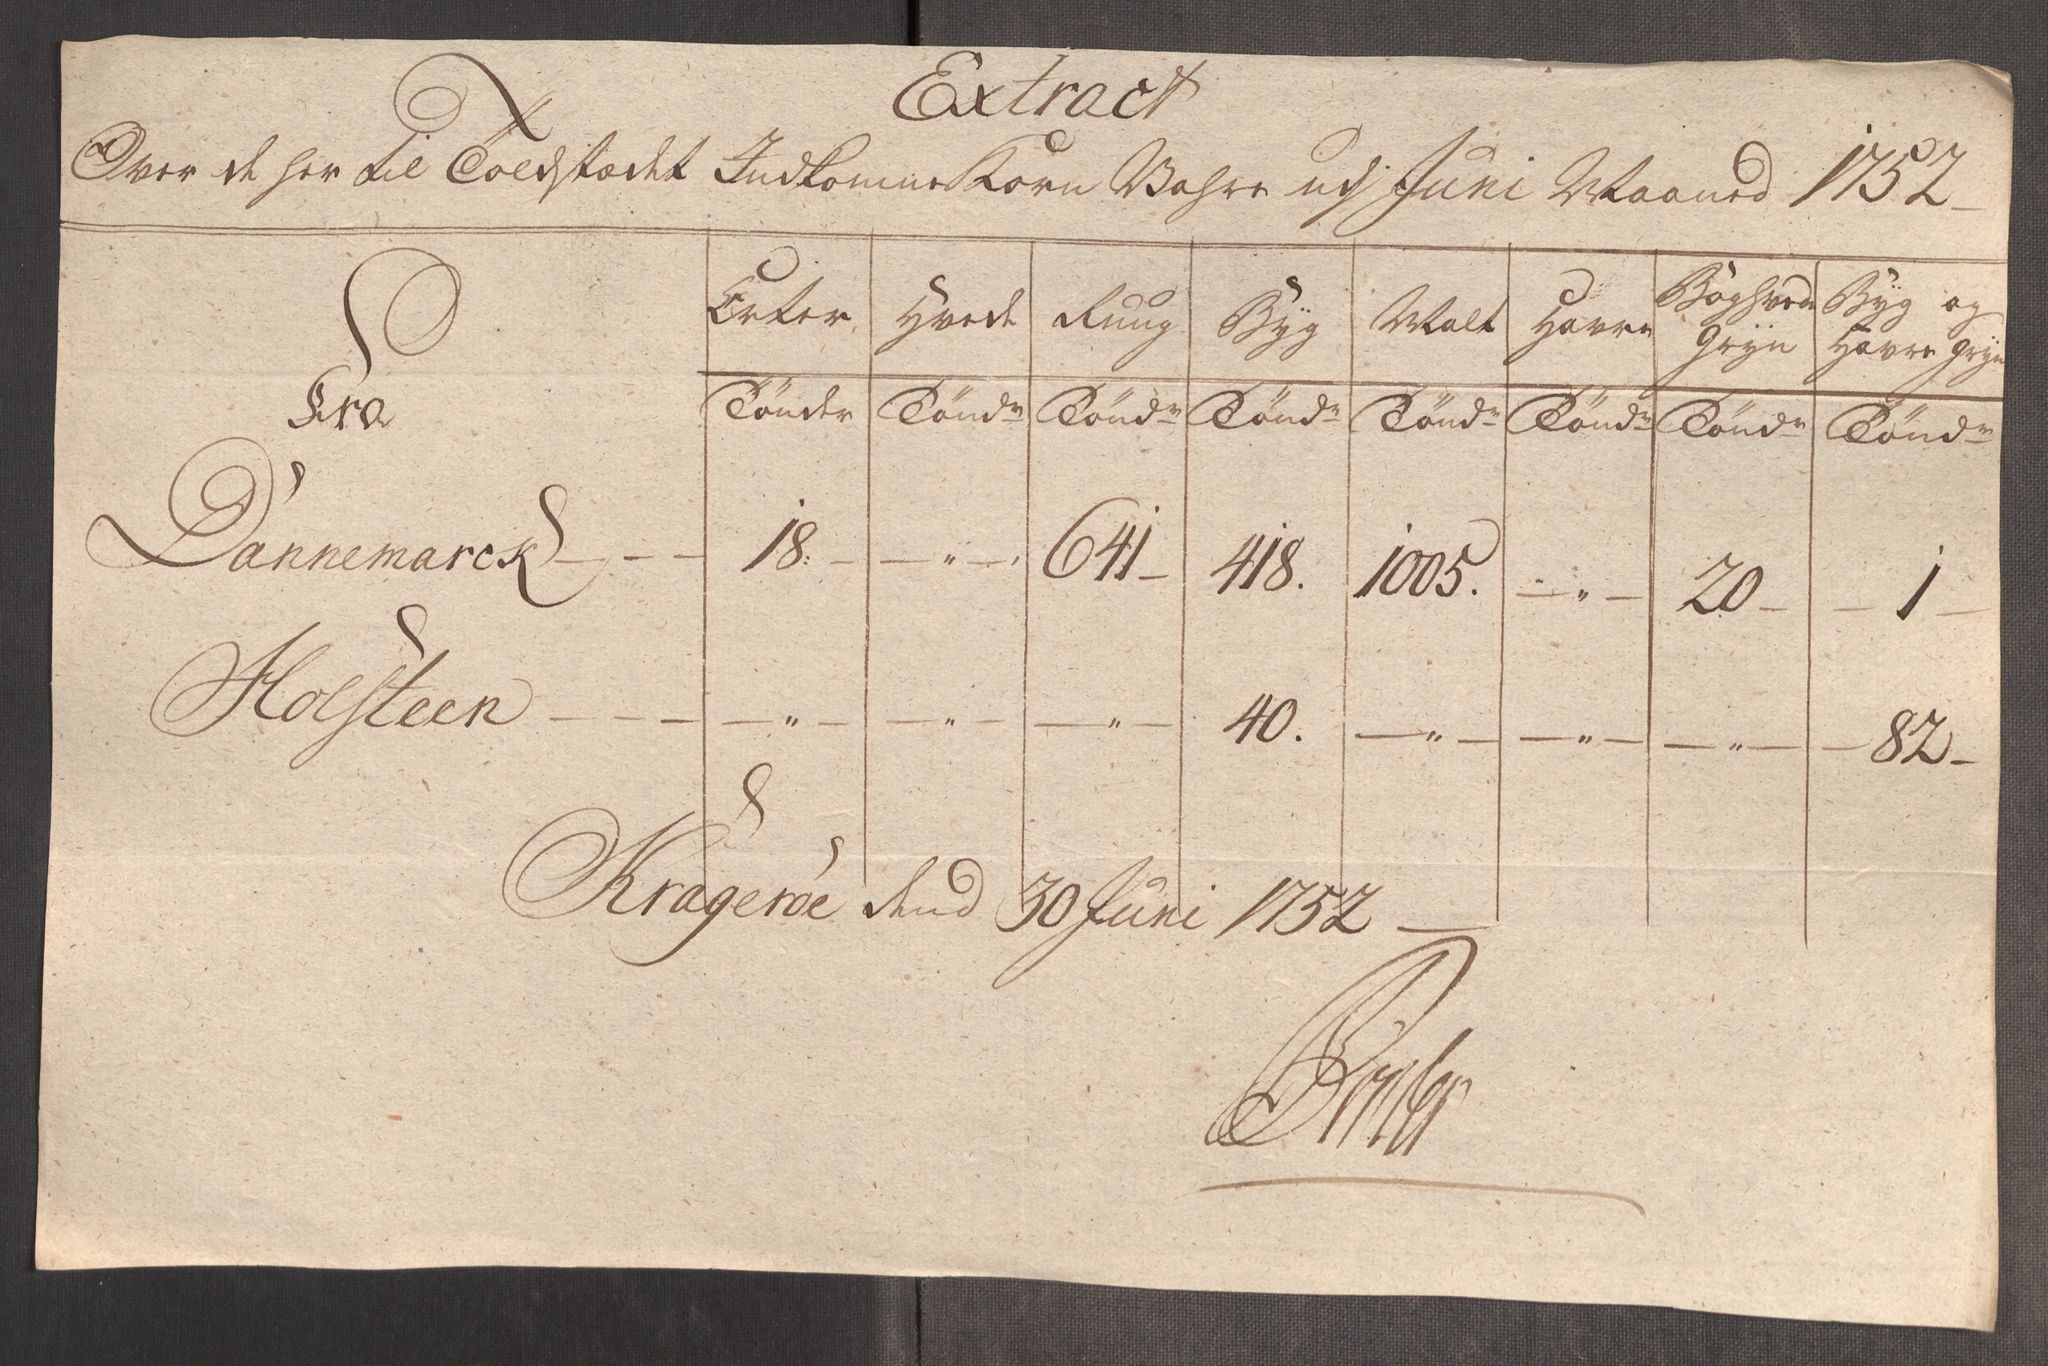 Extract
Over de her til Toldstædet Indkomne Korn Vahre udj Juni Maaned 1752
Fra
Erter Hvede Ruug Byg Malt Havre Boghvede Gryn Byg og Havre Gryn
Tönder Töndr Töndr Töndr Töndr Töndr Töndr Töndr
Dannemarck — — 18. — — " — 641 — 418. 1005. — " — 20 — — 1 —
Holsteen — — — — " — — " — — " — 40. — " — — " — — " — — 82 —
Krageröe dend 30 Juni 1752 —